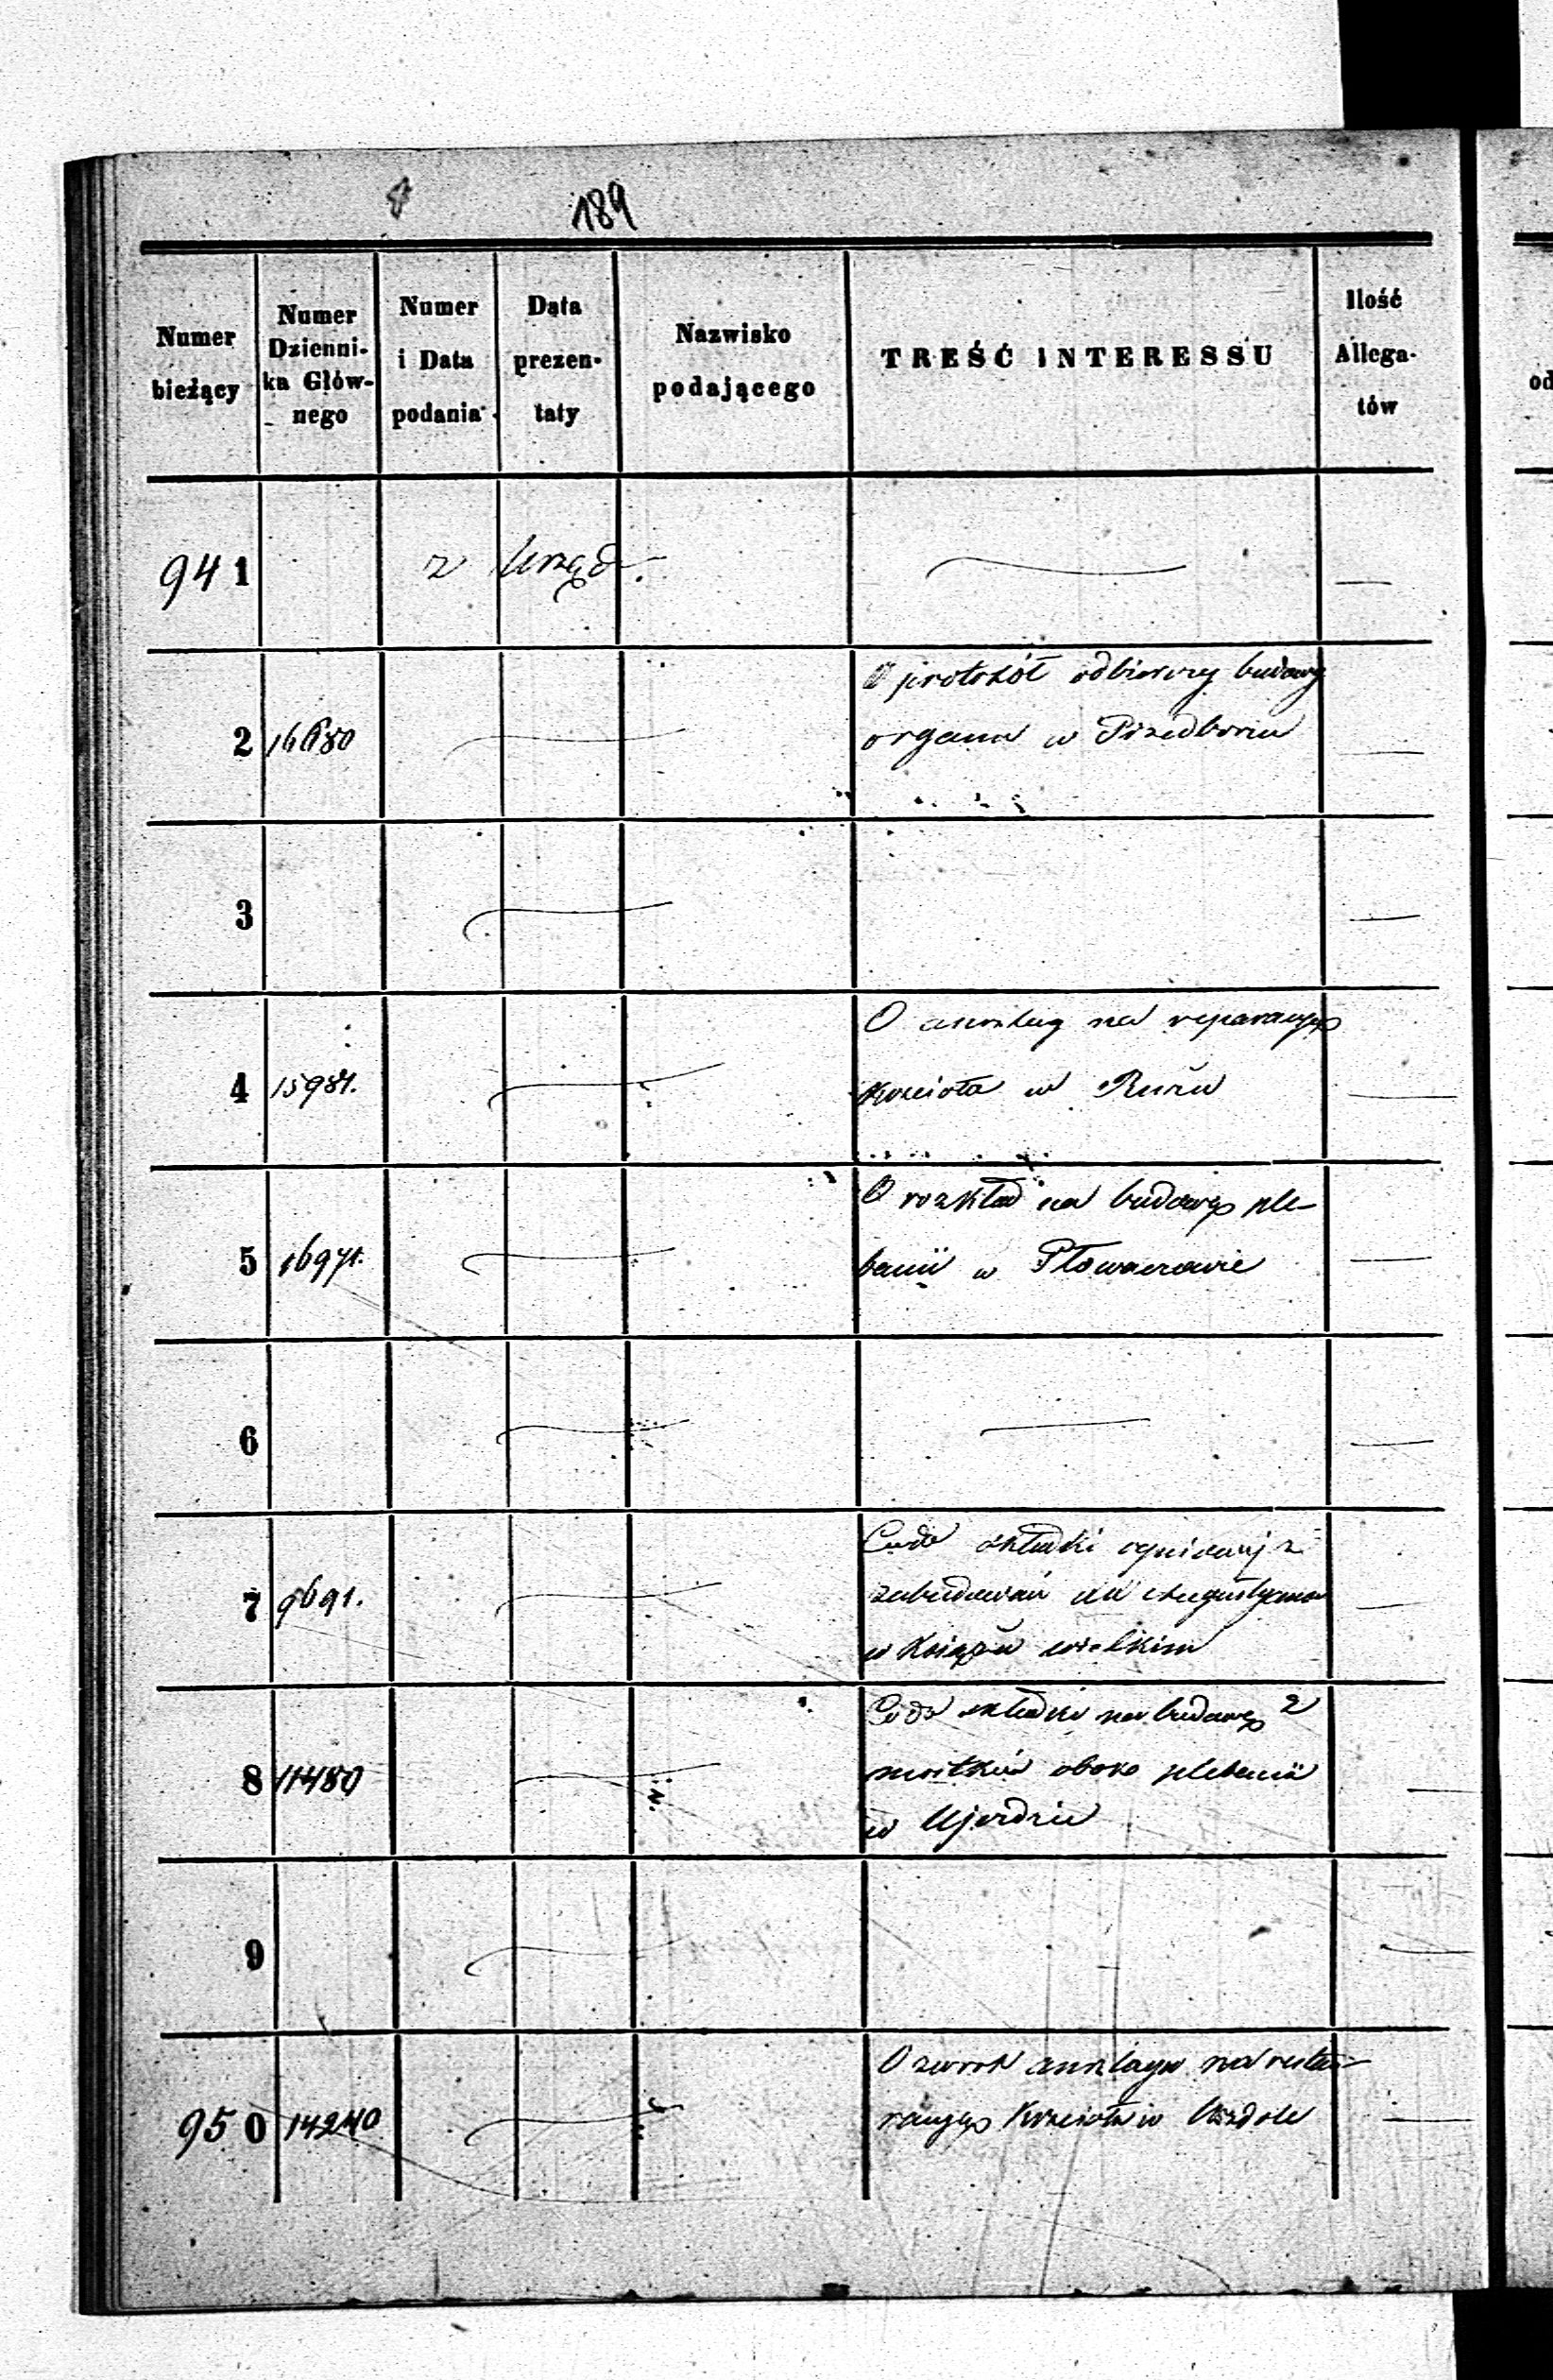 189
Numer
bieżący
Numer
Dzienni-
ka Głów-
nego
Numer
i Data
podania
Data
prezen-
taty
Nazwisko
podającego
TREŚĆ INTERESSU
Ilość
Allega-
tów
941 z Urzędu
2 16680 O protokół odbiorczy budowy
organu w Przedborzu
3
4 O anszlag na reparacyę
Kościoła w
5 O rozkład na budowę ple-
banii w
6
7 9691. składki ogniowej z
zabudowań
w Książu wielkim
8 11480 składki na budowę 2
mostków oboko plebanii
w Ujezdzie
9
950 14240 O zwrot anszlagu na restau-
racyę Kościoła w Wzdole